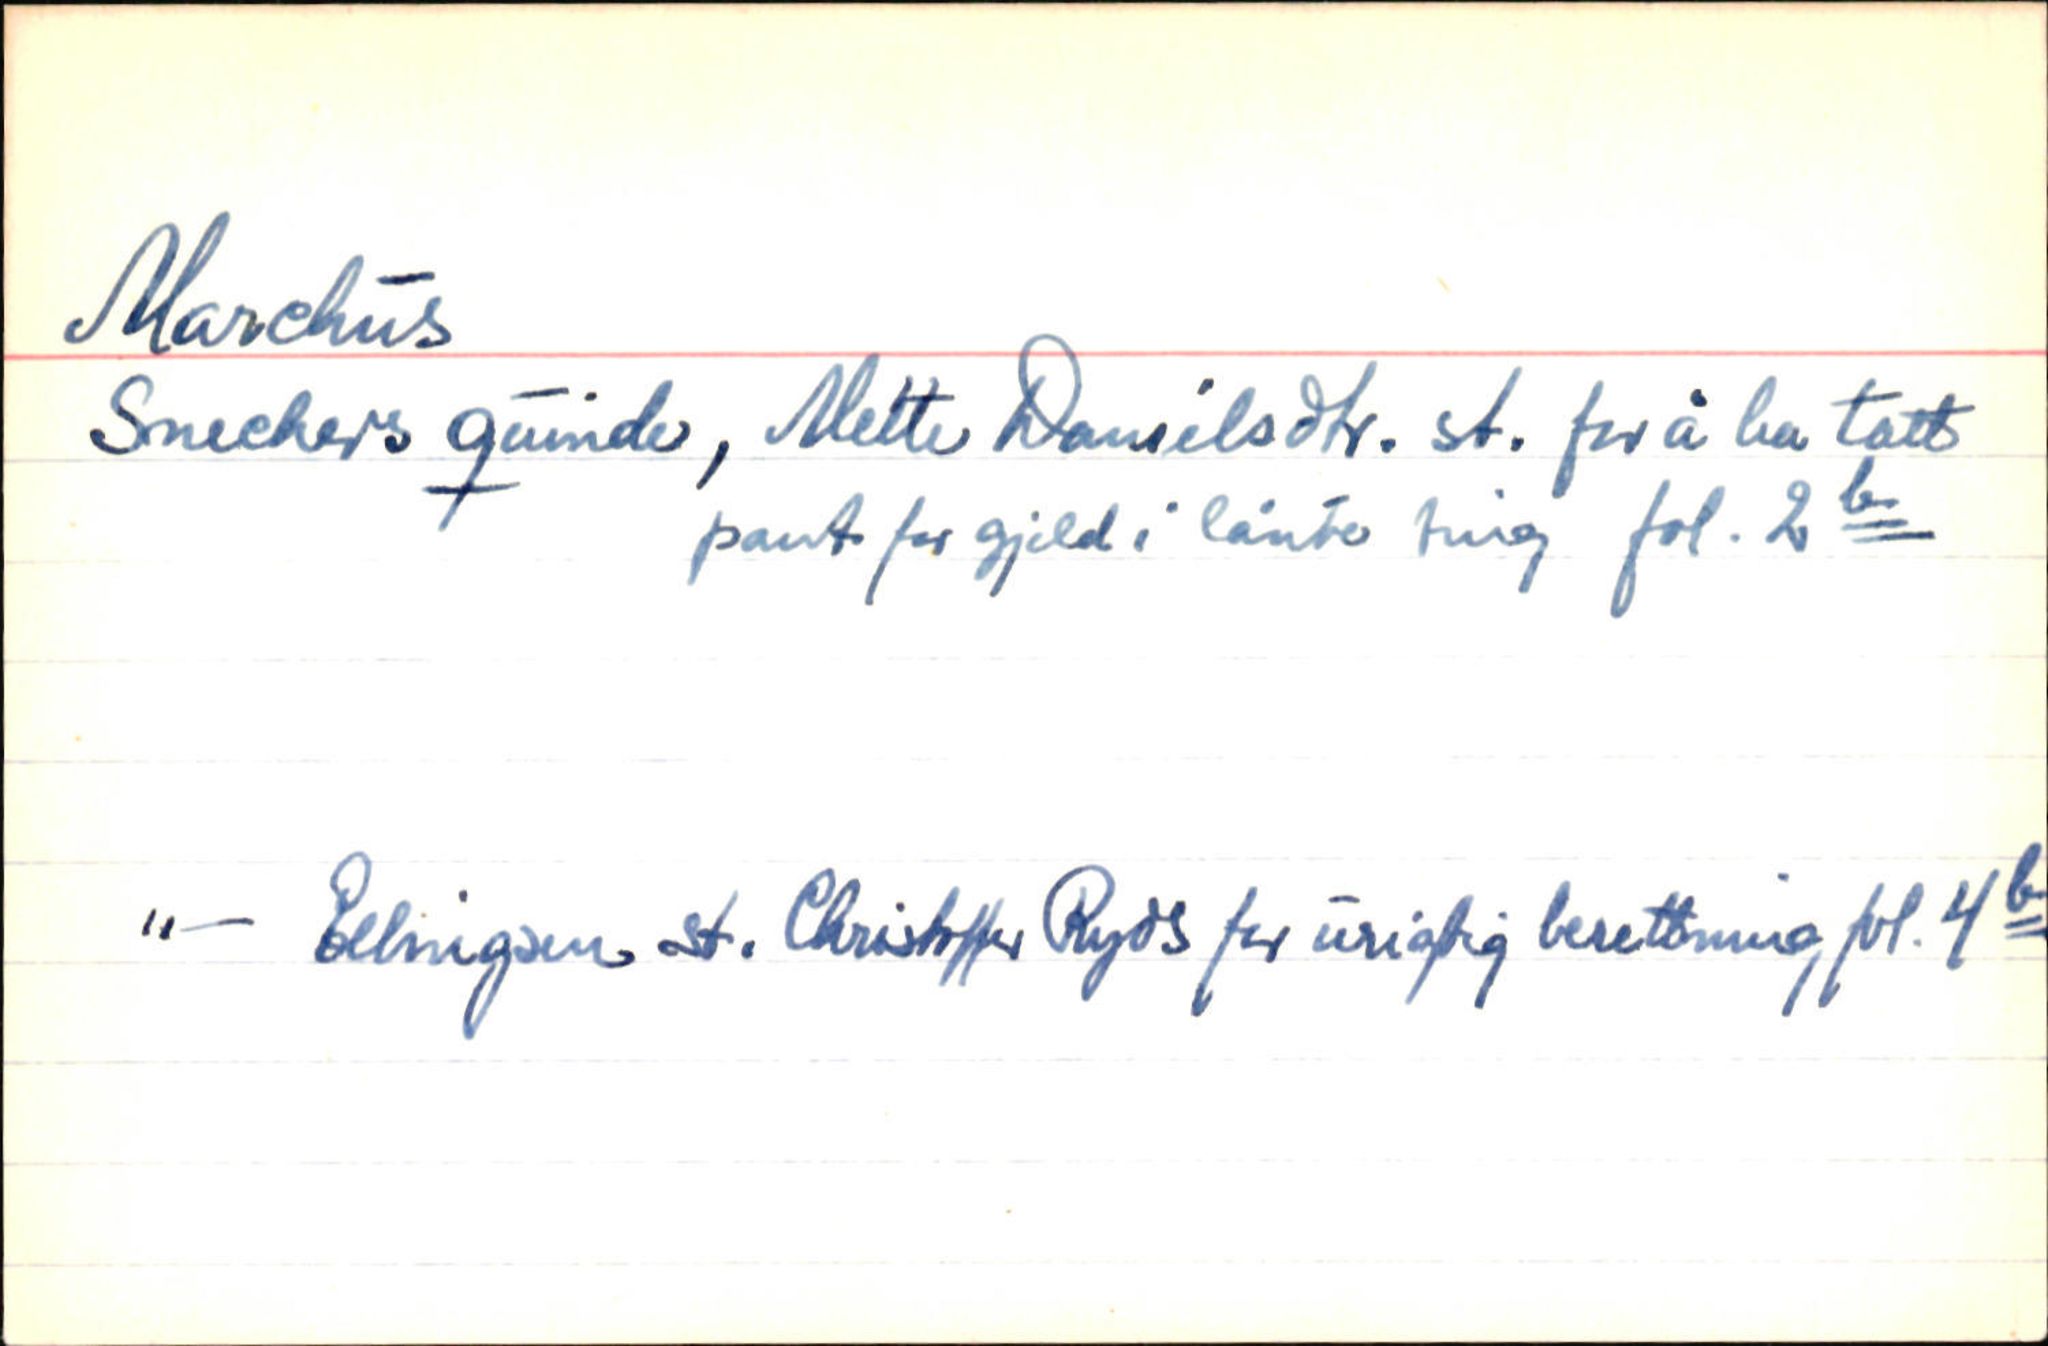 Marchūs
Snechers qūinde, Mette Danielsdtr. st. for å ha tatt
pant for gjeld i lånte ting fol. 2 b
"— Ellingsen st. Christoffer Ryds for ūrigtig beretning fol. 4 b